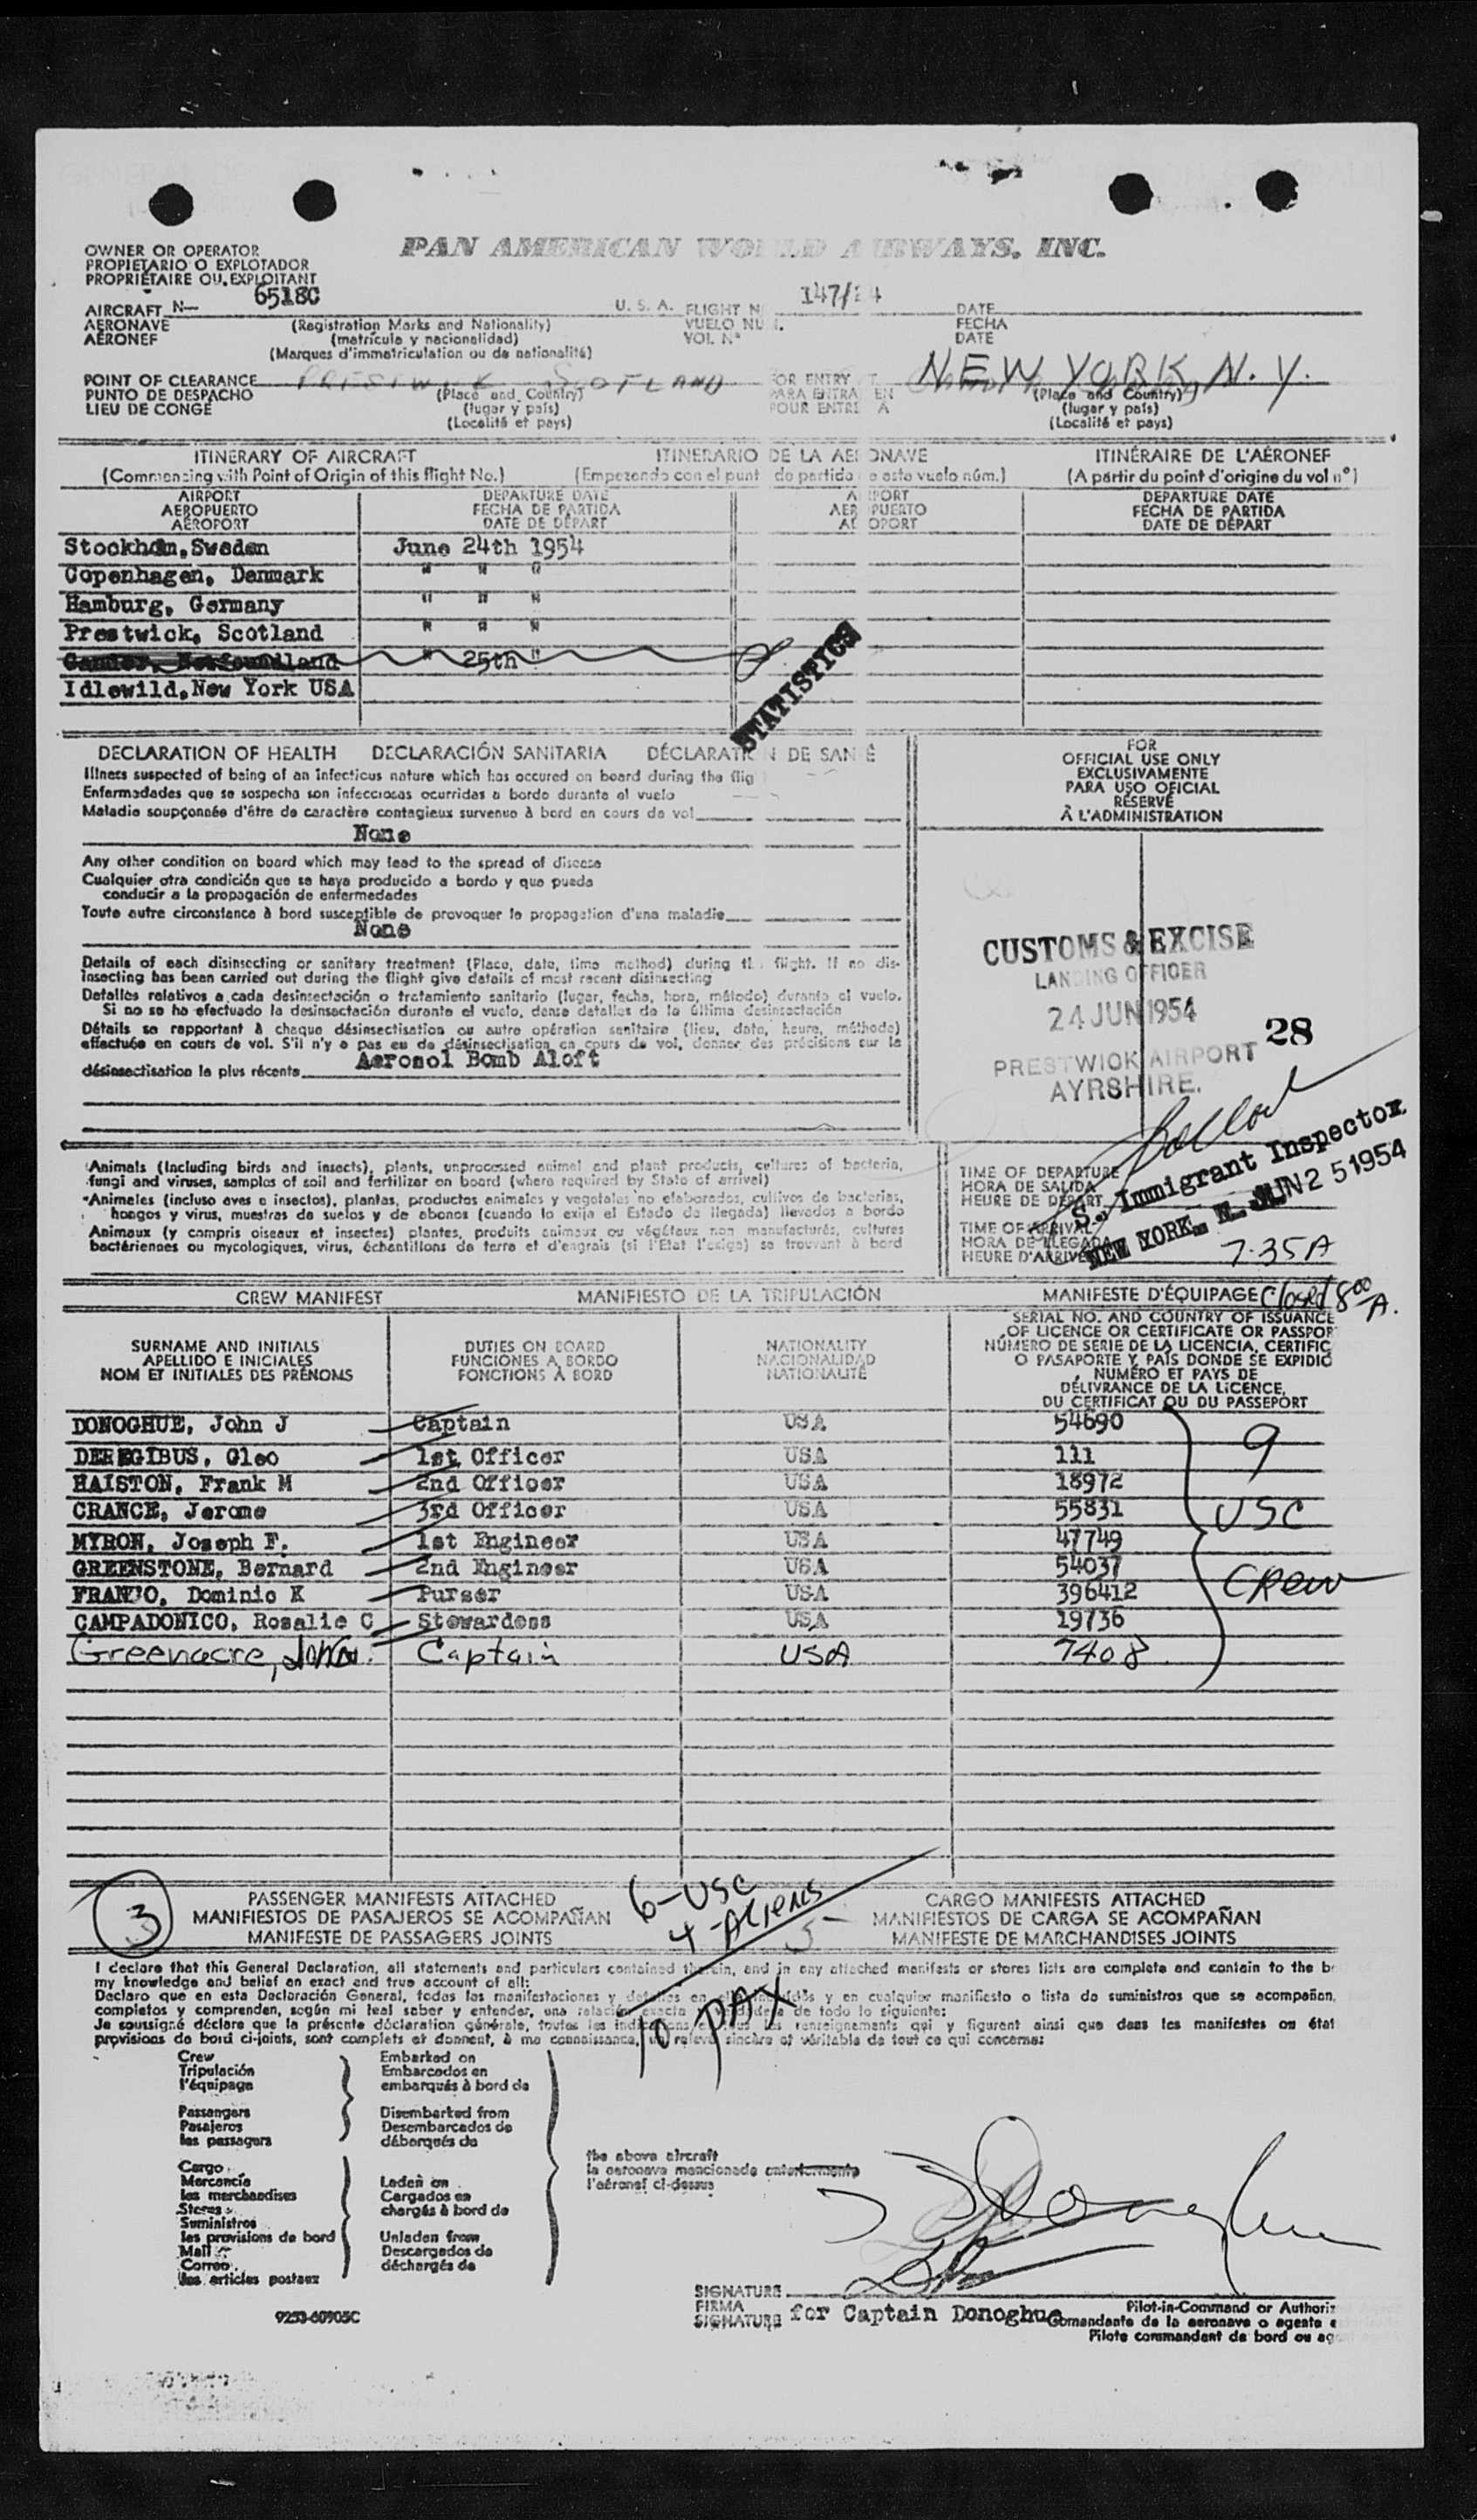 OWNER OR OPERATOR
PROPIETARIO O EXPLOTADOR
PROPRIÉTAIRE OU EXPLOITANT
PAN AMERICAN WORLD AIRWAYS, INC.
AIRCRAFT N— 6518C U. S. A. FLIGHT N 147/24 DATE
AERONAVE (Registration Marks and Nationality) VUELO NUM. FECHA
AÉRONEF (matrícula y nacionalidad) VOL Nº DATE
(Marques d'immatriculation ou de nationalité)
POINT OF CLEARANCE PRESTWICK SCOTLAND FOR ENTRY AT NEW YORK, N.Y.
PUNTO DE DESPACHO (Place and Country) PARA ENTRAR EN (Place and Country)
LIEU DE CONGÉ (lugar y país) POUR ENTRER A (lugar y país)
(Localité et pays) (Localité et pays)
ITINERARY OF AIRCRAFT ITINERARIO DE LA AERONAVE ITINÉRAIRE DE L'AÉRONEF
(Commencing with Point of Origin of this flight No.) (Empezando con el punto de partida de este vuelo núm.) (A partir du point d'origine du vol nº)
AIRPORT DEPARTURE DATE AIRPORT DEPARTURE DATE
AEROPUERTO FECHA DE PARTIDA AEROPUERTO FECHA DE PARTIDA
AÉROPORT DATE DE DÉPART AÉROPORT DATE DE DÉPART
Stockholm, Sweden June 24th 1954
Copenhagen, Denmark " " "
Hamburg, Germany " " "
Prestwick, Scotland " " "
Gander, Newfoundland " 25th "
Idlewild, New York USA
STATISTICS
DECLARATION OF HEALTH DECLARACIÓN SANITARIA DÉCLARATION DE SANTÉ
Illness suspected of being of an infectious nature which has occured on board during the flig
Enfermedades que se sospecha son infecciosas ocurridas a bordo durante el vuelo
Maladie soupçonnée d'être de caractère contagieux survenue à bord en cours de vol
None
Any other condition on board which may lead to the spread of disease
Cualquier otra condición que se haya producido a bordo y que pueda
conducir a la propagación de enfermedades
Toute autre circonstance à bord susceptible de provoquer la propagation d'une maladie
None
Details of each disinsecting or sanitary treatment (Place, date, time method) during the flight. If no dis-
insecting has been carried out during the flight give details of most recent disinsecting
Detalles relativos a cada desinsectación o tratamiento sanitario (lugar, fecha, hora, método) durante el vuelo.
Si no se ha efectuado la desinsectación durante el vuelo, dense detalles de la última desinsectación
Détails se rapportant à chaque désinsectisation ou autre opération sanitaire (lieu, date, heure, méthode)
effectuée en cours de vol. S'il n'y a pas eu de désinsectisation en cours de vol, donner des précisions sur la
désinsectisation la plus récente Aerosol Bomb Aloft
FOR
OFFICIAL USE ONLY
EXCLUSIVAMENTE
PARA USO OFICIAL
RÉSERVÉ
À L'ADMINISTRATION
CUSTOMS & EXCISE
LANDING OFFICER
24 JUN 1954
28
PRESTWICK AIRPORT
AYRSHIRE.
Animals (Including birds and insects), plants, unprocessed animal and plant products, cultures of bacteria,
fungi and viruses, samples of soil and fertilizer on board (where required by State of arrival)
Animales (incluso aves e insectos), plantas, productos animales y vegetales no elaborados, cultivos de bacterias,
hongos y virus, muestras de suelos y de abonos (cuando lo exija el Estado de llegada) llevados a bordo
Animaux (y compris oiseaux et insectes) plantes, produits animaux ou végétaux non manufacturés, cultures
bactériennes ou mycologiques, virus, échantillons de terre et d'engrais (si l'Etat l'exige) se trouvant à bord
TIME OF DEPARTURE
HORA DE SALIDA
HEURE DE DÉPART
TIME OF ARRIVAL
HORA DE LLEGADA
HEURE D'ARRIVÉE
S. Immigrant Inspector
NEW YORK, N. JUN 25 1954
7.35A
Closed 8 00 A.
CREW MANIFEST MANIFIESTO DE LA TRIPULACIÓN MANIFESTE D'ÉQUIPAGE
SURNAME AND INITIALS
APELLIDO E INICIALES
NOM ET INITIALES DES PRÉNOMS
DUTIES ON BOARD
FUNCIONES A BORDO
FONCTIONS À BORD
NATIONALITY
NACIONALIDAD
NATIONALITÉ
SERIAL NO. AND COUNTRY OF ISSUANCE
OF LICENCE OR CERTIFICATE OR PASSPOR
NÚMERO DE SERIE DE LA LICENCIA, CERTIFIC
O PASAPORTE Y PAÍS DONDE SE EXPIDIÓ
NUMÉRO ET PAYS DE
DÉLIVRANCE DE LA LICENCE,
DU CERTIFICAT OU DU PASSEPORT
DONOGHUE, John J Captain USA 54690
DEREGIBUS, Cleo 1st Officer USA 111
HAISTON, Frank M 2nd Officer USA 18972
CRANCE, Jerome 3rd Officer USA 55831
MYRON, Joseph F. 1st Engineer USA 47749
GREENSTONE, Bernard 2nd Engineer USA 54037
FRANJO, Dominic K Purser USA 396412
CAMPADONICO, Rosalie C Stewardess USA 19736
Greenacre, John Captain USA 7408
9
USC
Crew
3
PASSENGER MANIFESTS ATTACHED
MANIFIESTOS DE PASAJEROS SE ACOMPAÑAN
MANIFESTE DE PASSAGERS JOINTS
6-USC
4-Aliens
10 PAX
5
CARGO MANIFESTS ATTACHED
MANIFIESTOS DE CARGA SE ACOMPAÑAN
MANIFESTE DE MARCHANDISES JOINTS
I declare that this General Declaration, all statements and particulars contained therein, and in any attached manifests or stores lists are complete and contain to the b
my knowledge and belief an exact and true account of all:
Declaro que en esta Declaración General, todas las manifestaciones y detalles en ella incluídos y en cualquier manifiesto o lista de suministros que se acompañan,
completos y comprenden, según mi leal saber y entender, una relación exacta y verdadera de todo lo siguiente:
Je soussigné déclare que la présente déclaration générale, toutes les indications et tous les renseignements qui y figurent ainsi que dans les manifestes ou état
provisions de bord ci-joints, sont complets et donnent, à ma connaissance, un relevé sincère et véritable de tout ce qui concerne:
Crew
Tripulación
l'équipage
Passengers
Pasajeros
les passagers
Cargo
Mercancía
les marchandises
Stores
Suministros
les provisions de bord
Mail
Correo
les articles postaux
Embarked on
Embarcados en
embarqués à bord de
Disembarked from
Desembarcados de
débarqués du
Laden on
Cargados en
chargés à bord de
Unladen from
Descargados de
déchargés de
the above aircraft
la aeronave mencionada anteriormente
l'aéronef ci-dessus
J J Donoghue
SIGNATURE
FIRMA
SIGNATURE for Captain Donoghue
Pilot-in-Command or Authoriz
Comandante de la aeronave o agente a
Pilote commandant de bord ou ag
9253-60905C